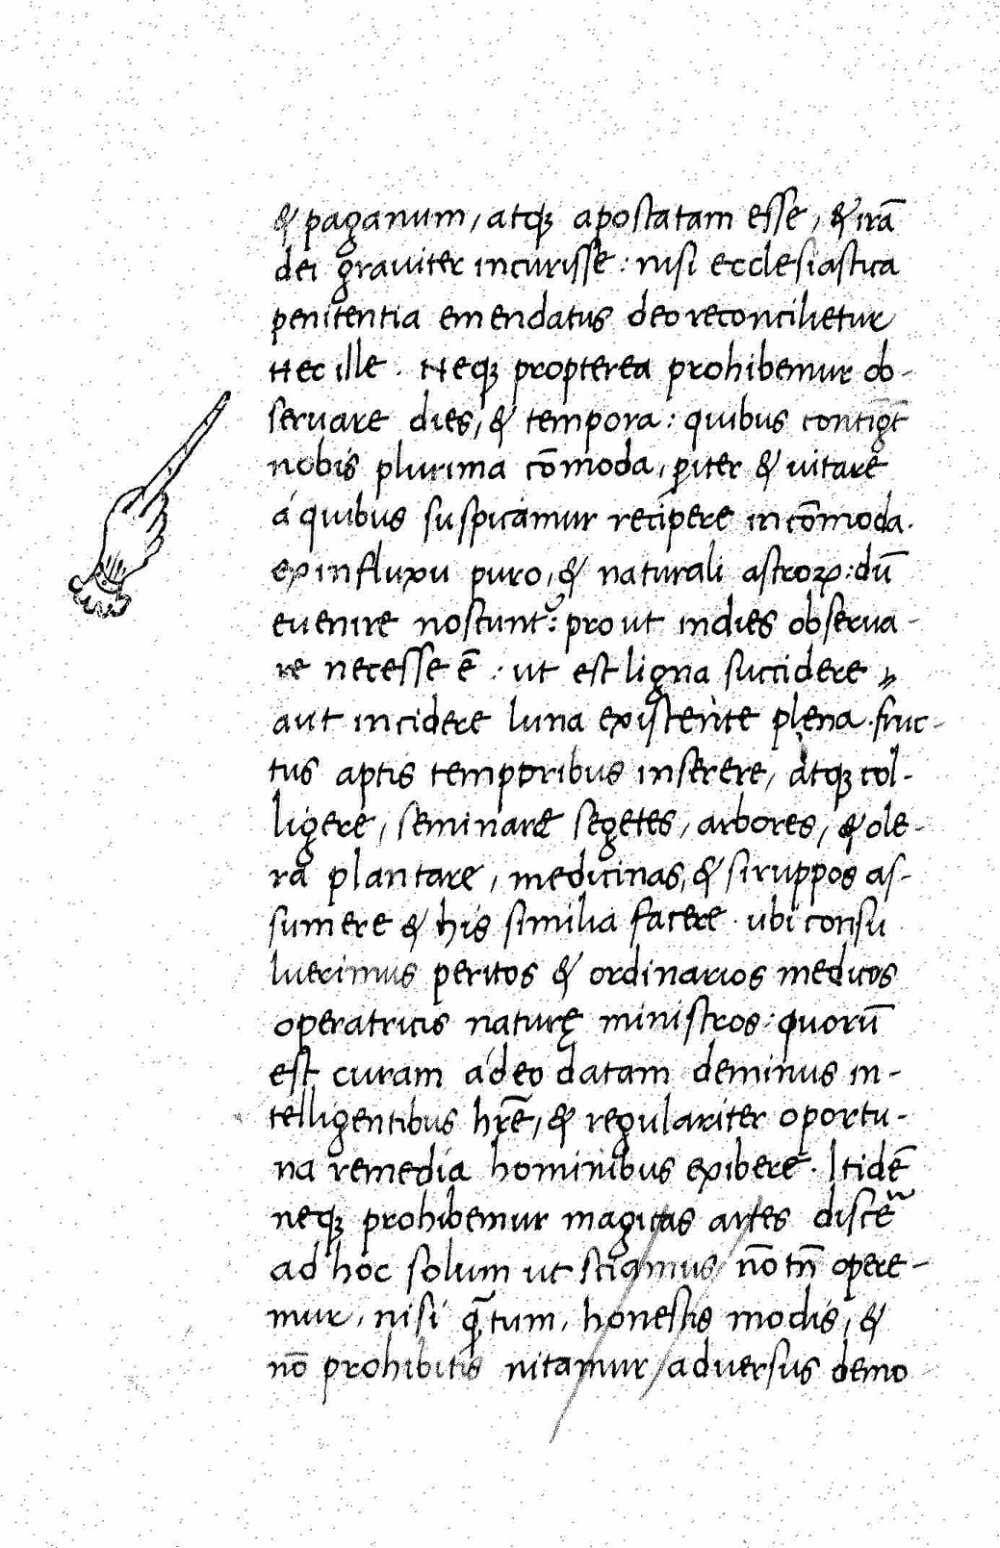 & paganum, atq; apostatam esse, & irā
dei graviter incurisse: nisi ecclesiastica
penitentia emendatus deo reconcilietur
Hec ille. Neq; propterea prohibemur ob-
seruare dies, & tempora: quibus contīgt̄
nobis plurima cōmoda, ꝑiter & uitare
á quibus suspicamur recipere incōmoda.
ex influxu puro, & naturali astroꝝ: dū
euenire noscunt᷑: prout indies obserua-
re necesse ē: ut est ligna succidere,,
aut incidere luna existente plena. fruc-
tus aptis temporibus inserere, atq; col-
ligere, seminare segetes, arbores, & ole-
ra plantare, medicinas, & siruppos as-
sumere & his similia facere. ubi consu
luerimus peritos & ordinarios medicos
operatricis naturę ministros: quorū
est curam ádeo datam deminus in-
telligentibus hr̄e, & regulariter oportu-
na remedia hominibus exibere. Itidē
neq; prohibemur magicas artes discē᷑
ad hoc solum ut sciamus, nō tn̄ opere-
mur, nisi q̄tum, honestis modis, &
nō prohibitis nitamur adversus demo